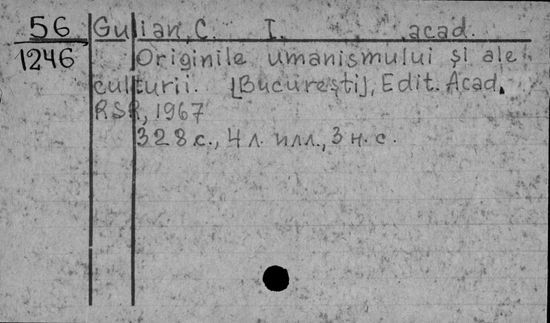 56 Gulian, C. I. acad.
1246 Originile umanismului și ale
culturii. [București], Edit. Acad.
RSR, 1967
328 с., 4 л. илл., 3 н. с.